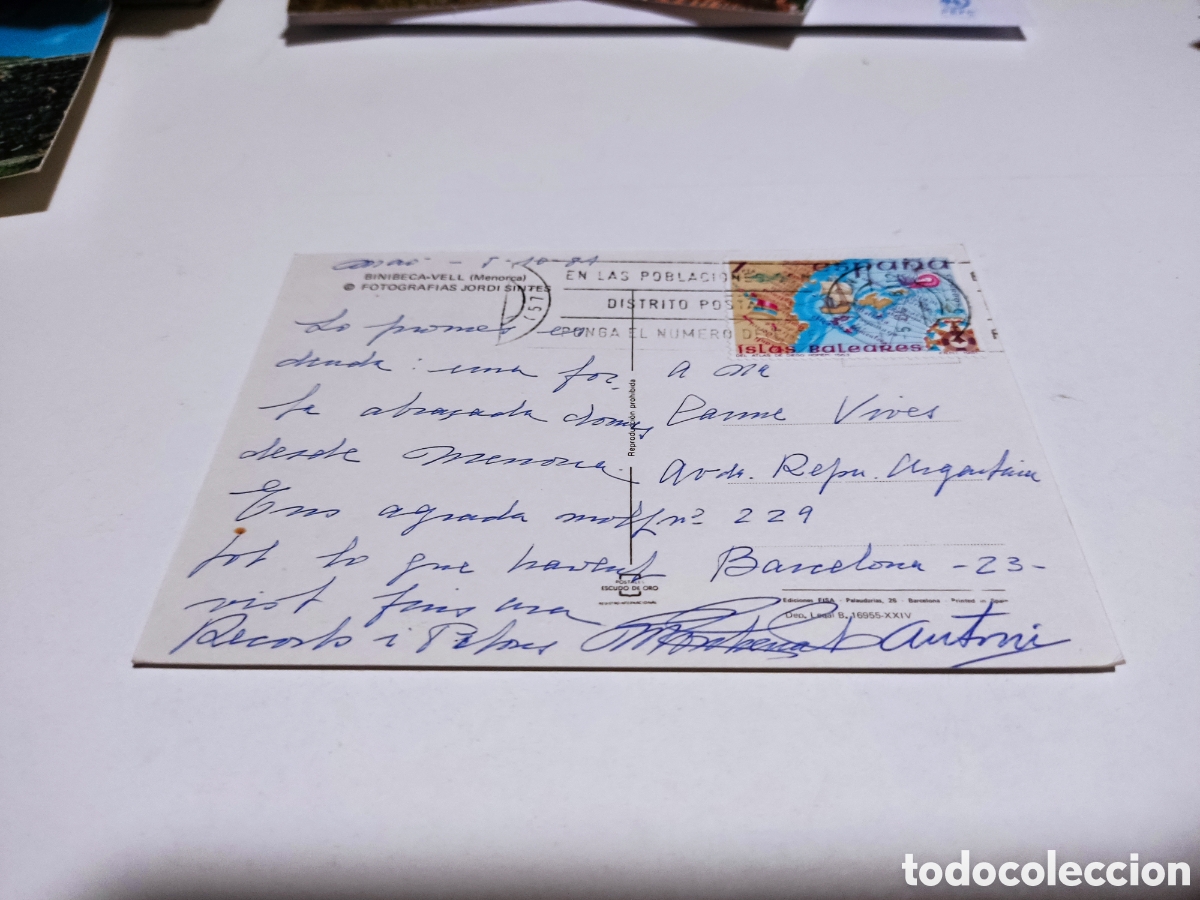 Maó - 5-10-81
BINIBECA-VELL (Menorca)
© FOTOGRAFIAS JORDI SINTES
EN LAS POBLACION
DISTRITO POSTA
PONGA EL NUMERO DE
7 ESPAÑA
ISLAS BALEARES
Lo promes es
deuda: una for-
ta abraçada
desde Menorca.
Ens agrada molt
tot lo que havem
vist fins ara
Records i Petons
Antoni
Reproducción prohibida
A Na
Carme Vives
Avda. Repu. Argentina
nº 229
Barcelona -23-
POSTALES
ESCUDO DE ORO
Ediciones FISA - Palaudarias, 26 - Barcelona - Printed in Spain
Dep. Legal B. 16955-XXIV
todocoleccion